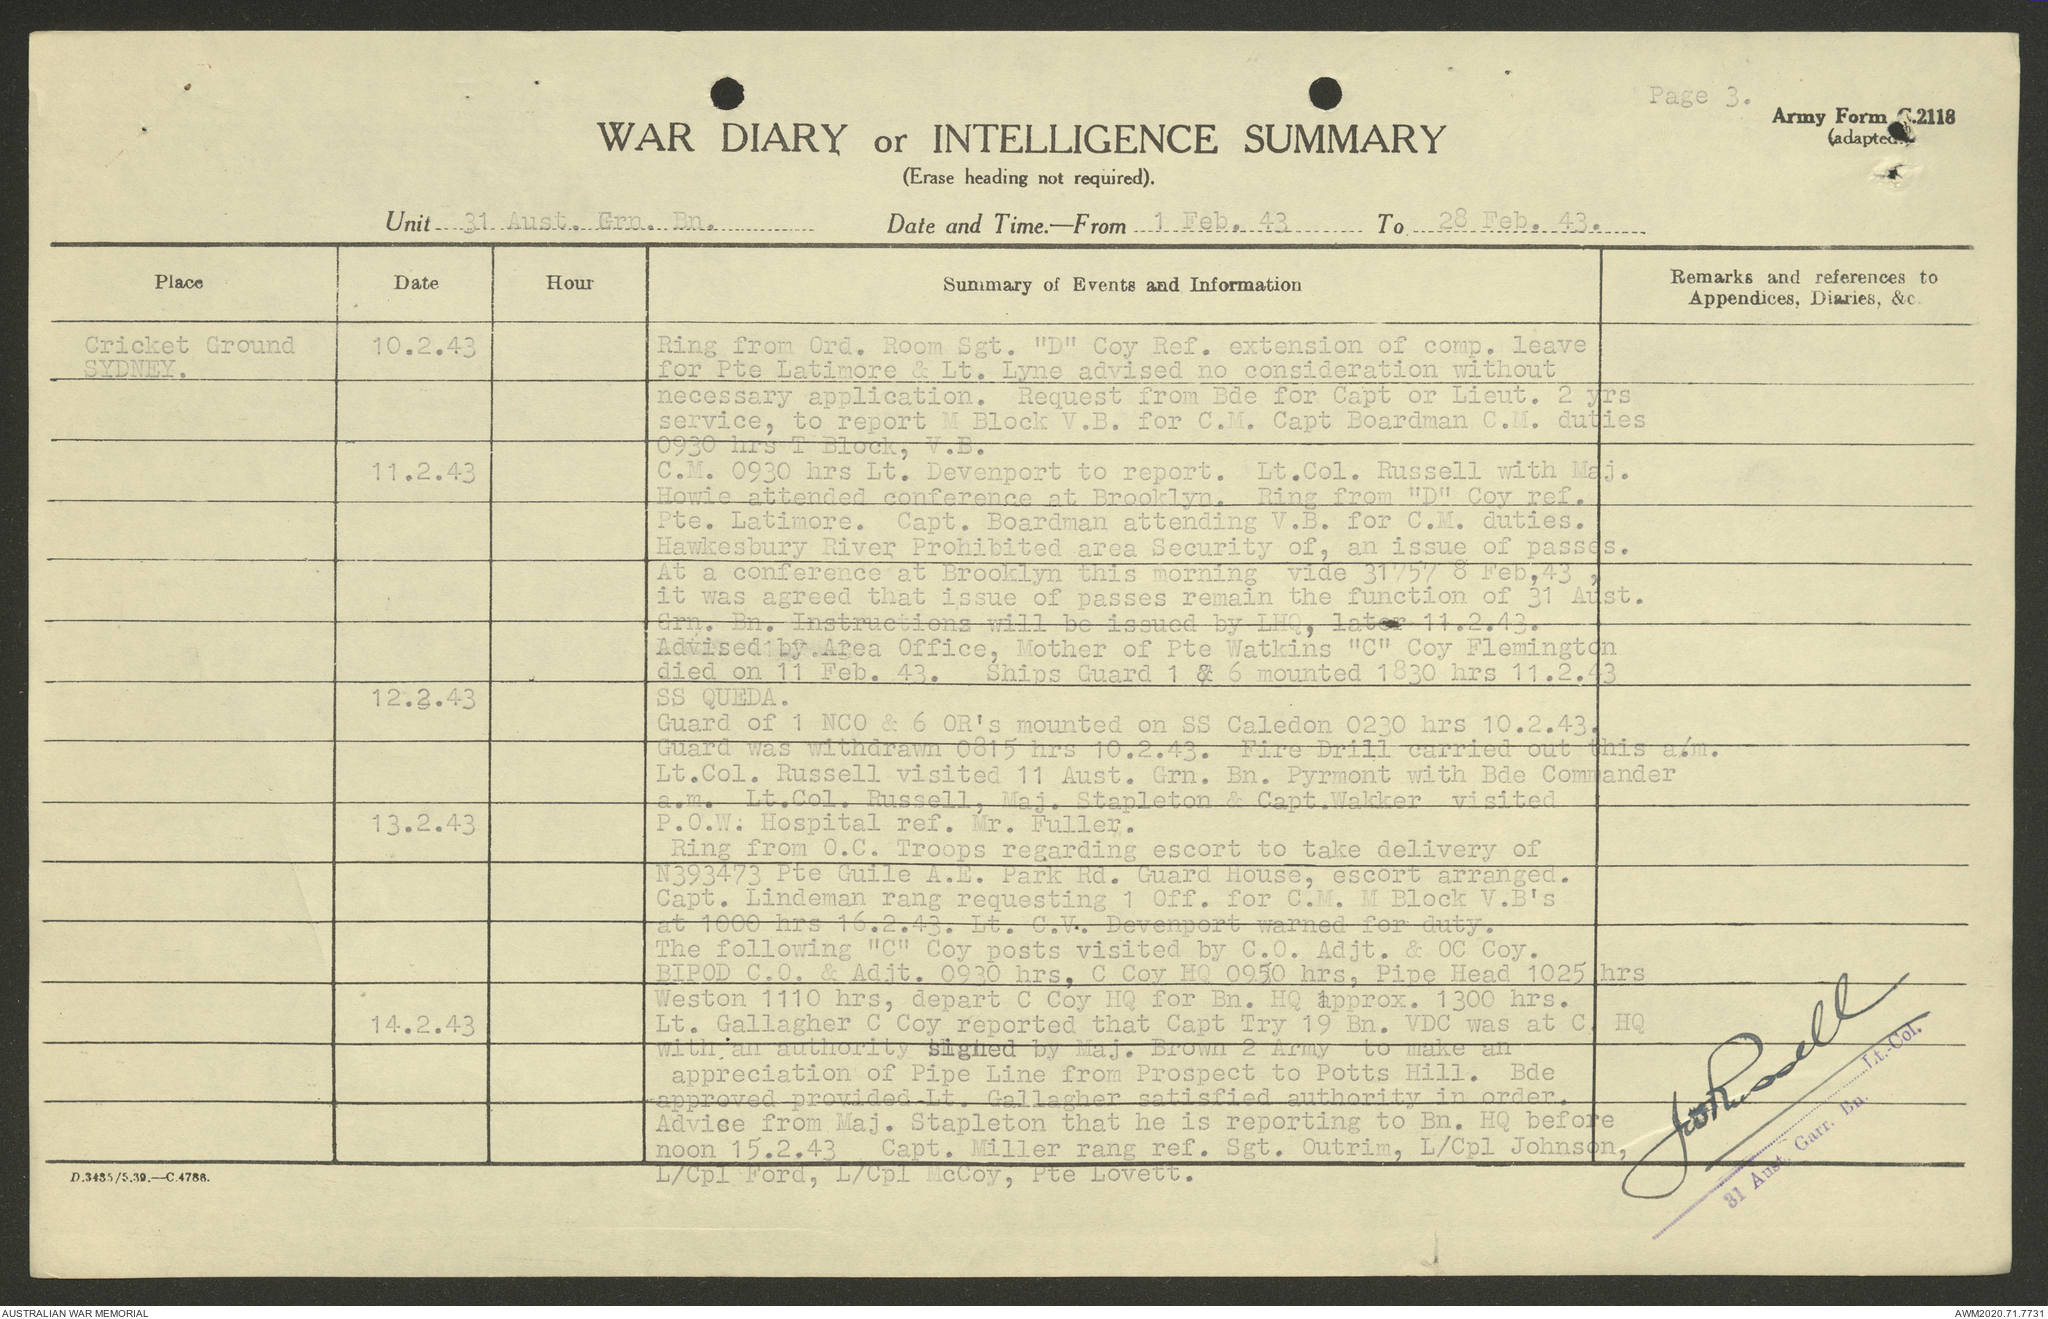 Page 3.
Army Form C.2118
(adapted.)
WAR DIARY or INTELLIGENCE SUMMARY
(Erase heading not required).
Unit 31 Aust. Grn. Bn. Date and Time.—From 1 Feb. 43 To 28 Feb. 43.
Place Date Hour Summary of Events and Information Remarks and references to
Appendices, Diaries, &c.
Cricket Ground 10.2.43 Ring from Ord. Room Sgt. "D" Coy Ref. extension of comp. leave
SYDNEY. for Pte Latimore & Lt. Lyne advised no consideration without
necessary application. Request from Bde for Capt or Lieut. 2 yrs
service, to report M Block V.B. for C.M. Capt Boardman C.M. duties
0930 hrs T Block, V.B.
11.2.43 C.M. 0930 hrs Lt. Devenport to report. Lt.Col. Russell with Maj.
Howie attended conference at Brooklyn. Ring from "D" Coy ref.
Pte. Latimore. Capt. Boardman attending V.B. for C.M. duties.
Hawkesbury River Prohibited area Security of, an issue of passes.
At a conference at Brooklyn this morning vide 31757 8 Feb,43 ,
it was agreed that issue of passes remain the function of 31 Aust.
Grn. Bn. Instructions will be issued by LHQ, later 11.2.43.
Advised by Area Office, Mother of Pte Watkins "C" Coy Flemington
died on 11 Feb. 43. Ships Guard 1 & 6 mounted 1830 hrs 11.2.43
12.2.43 SS QUEDA.
Guard of 1 NCO & 6 OR's mounted on SS Caledon 0230 hrs 10.2.43.
Guard was withdrawn 0815 hrs 10.2.43. Fire Drill carried out this a/m.
Lt.Col. Russell visited 11 Aust. Grn. Bn. Pyrmont with Bde Commander
a.m. Lt.Col. Russell, Maj. Stapleton & Capt.Wakker visited
13.2.43 P.O.W. Hospital ref. Mr. Fuller.
Ring from O.C. Troops regarding escort to take delivery of
N393473 Pte Guile A.E. Park Rd. Guard House, escort arranged.
Capt. Lindeman rang requesting 1 Off. for C.M. M Block V.B's
at 1000 hrs 16.2.43. Lt. C.V. Devenport warned for duty.
The following "C" Coy posts visited by C.O. Adjt. & OC Coy.
BIPOD C.O. & Adjt. 0930 hrs, C Coy HQ 0950 hrs, Pipe Head 1025 hrs
Weston 1110 hrs, depart C Coy HQ for Bn. HQ approx. 1300 hrs.
14.2.43 Lt. Gallagher C Coy reported that Capt Try 19 Bn. VDC was at C. HQ
with an authority signed by Maj. Brown 2 Army to make an
appreciation of Pipe Line from Prospect to Potts Hill. Bde
approved provided Lt. Gallagher satisfied authority in order.
Advise from Maj. Stapleton that he is reporting to Bn. HQ before
noon 15.2.43 Capt. Miller rang ref. Sgt. Outrim, L/Cpl Johnson,
L/Cpl Ford, L/Cpl McCoy, Pte Lovett.
Russell
Lt.-Col.
31 Aust. Garr. Bn.
D.3435/5.39.—C.4786.
AUSTRALIAN WAR MEMORIAL
AWM2020.71.7731